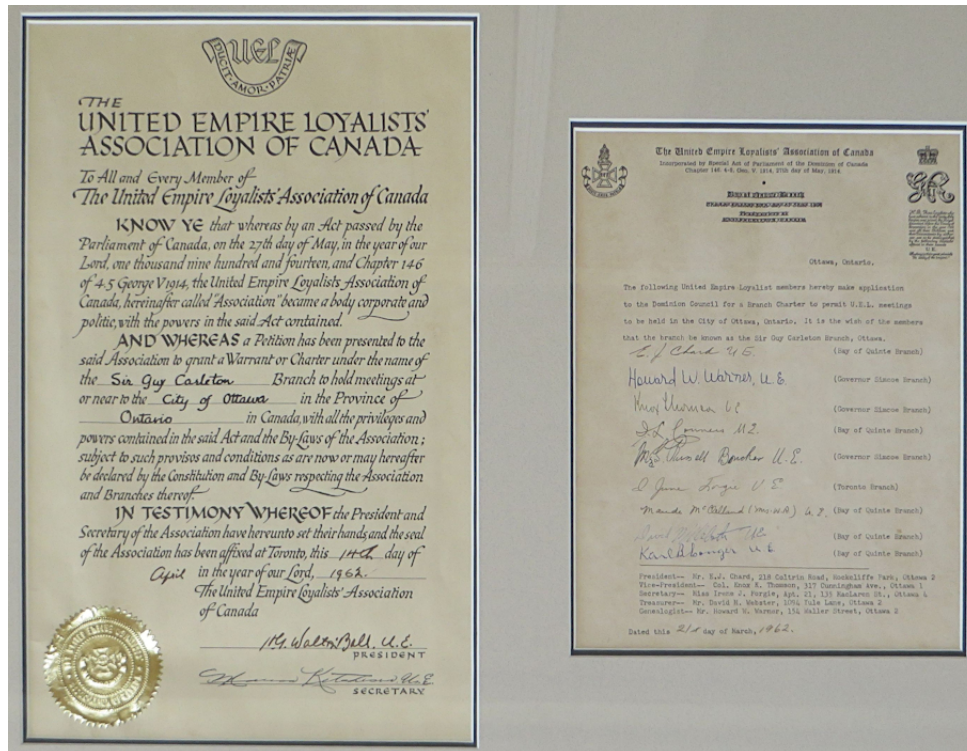 UEL
DUCIT·AMOR·PATRIÆ
THE
UNITED EMPIRE LOYALISTS'
ASSOCIATION OF CANADA
To All and Every Member of
The United Empire Loyalists' Association of Canada
KNOW YE that whereas by an Act passed by the
Parliament of Canada, on the 27th day of May, in the year of our
Lord, one thousand nine hundred and fourteen, and Chapter 146
of 4.5 George V 1914, the United Empire Loyalists Association of
Canada, hereinafter called "Association" became a body corporate and
politic, with the powers in the said Act contained.
AND WHEREAS a Petition has been presented to the
said Association to grant a Warrant or Charter under the name of
the Sir Guy Carleton Branch to hold meetings at
or near to the City of Ottawa in the Province of
Ontario in Canada, with all the privileges and
powers contained in the said Act and the By-Laws of the Association;
subject to such provisos and conditions as are now or may hereafter
be declared by the Constitution and By-Laws respecting the Association
and Branches thereof.
IN TESTIMONY WHEREOF the President and
Secretary of the Association have hereunto set their hands, and the seal
of the Association has been affixed at Toronto, this 14th day of
April in the year of our Lord, 1962.
The United Empire Loyalists' Association
of Canada
U.E.
PRESIDENT
U.E.
SECRETARY
The United Empire Loyalists' Association of Canada
Incorporated by Special Act of Parliament of the Dominion of Canada
Chapter 146. 4-5, Geo. V 1914, 27th day of May, 1914
Ottawa, Ontario.
The following United Empire Loyalist members hereby make application
to the Dominion Council for a Branch Charter to permit U.E.L. meetings
to be held in the City of Ottawa, Ontario. It is the wish of the members
that the branch be known as the Sir Guy Carleton Branch, Ottawa.
E. J. Chard U E (Bay of Quinte Branch)
Howard W. Warner, U.E. (Governor Simcoe Branch)
Knox Thomson UE (Governor Simcoe Branch)
(Bay of Quinte Branch)
Mrs. Russell Boucher U.E. (Governor Simcoe Branch)
U E (Toronto Branch)
Maude U.E. (Bay of Quinte Branch)
UE (Bay of Quinte Branch)
Karl U E (Bay of Quinte Branch)
President-- Mr. E.J. Chard, 218 Coltrin Road, Rockcliffe Park, Ottawa 2
Vice-President-- Col. Knox E. Thomson, 317 Cunningham Ave., Ottawa 1
Secretary-- Miss Irene J. Forgie, Apt. 21, 135 MacLaren St., Ottawa 4
Treasurer-- Mr. David H. Webster, 1084 Tule Lane, Ottawa 2
Genealogist-- Mr. Howard W. Warner, 154 Waller Street, Ottawa 2
Dated this 21st day of March, 1962.